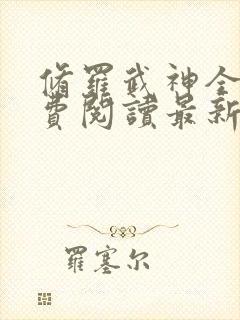 脩羅武神全
費閱讀最新
羅塞尔